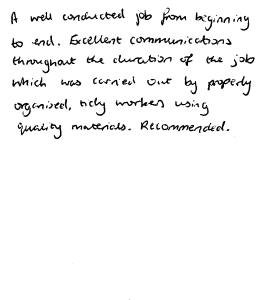 A well conducted job from beginning
to end. Excellent communications
throughout the duration of the job
which was carried out by properly
organised, tidy workers using
quality materials. Recommended.